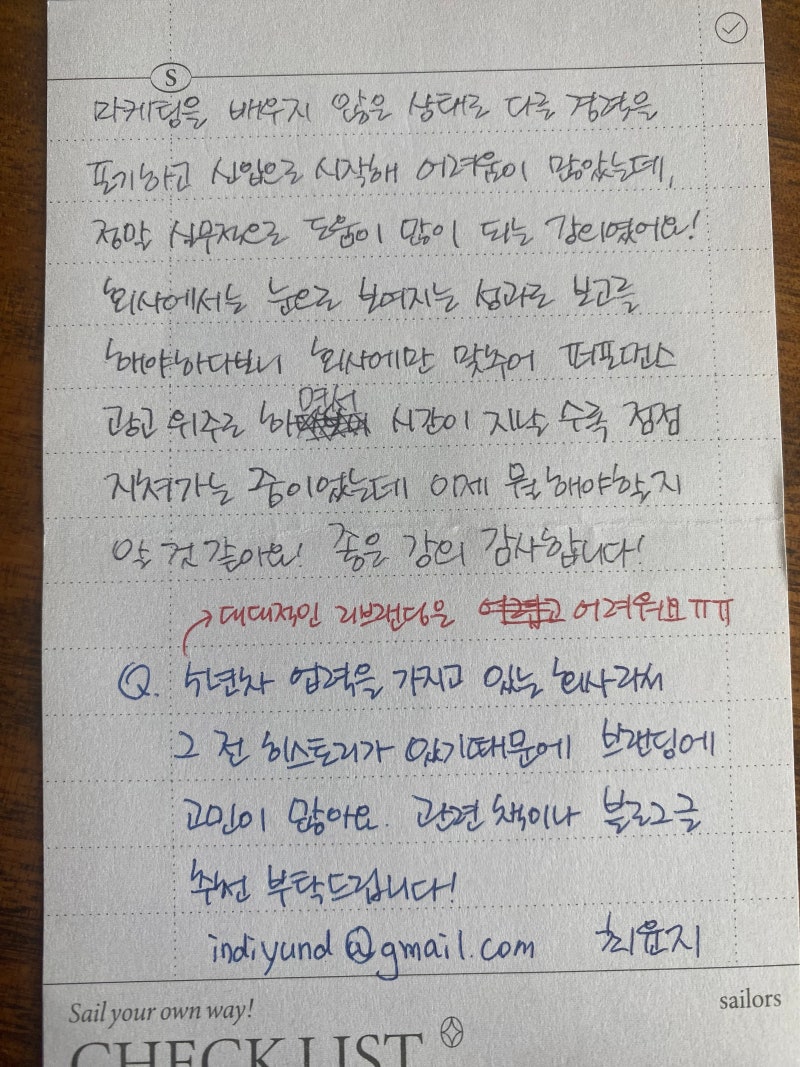 S
마케팅을 배우지 않은 상태로 다른 경력을
포기하고 신입으로 시작해 어려움이 많았는데,
정말 실무적으로 도움이 많이 되는 강의였어요!
회사에서는 눈으로 보여지는 성과로 보고를
해야하다보니 회사에만 맞추어 퍼포먼스
광고 위주로 하면서 시간이 지날 수록 점점
지쳐가는 중이었는데 이제 뭘 해야할지
알 것 같아요! 좋은 강의 감사합니다!
대대적인 리브랜딩은 어려워요ㅠㅠ
Q. 5년차 업력을 가지고 있는 회사라서
그 전 히스토리가 있기때문에 브랜딩에
고민이 많아요. 관련 책이나 블로그글
추천 부탁드립니다!
indiyund@gmail.com 최윤지
Sail your own way! sailors
CHECK LIST